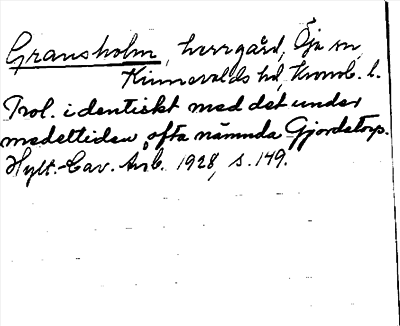 Gransholm, herrgård, Öja sn,
Kinnevalds hd, Kronob. l.
Trol. identiskt med det under
medeltiden ofta nämnda Gjordstorp.
Hylt.-Cav. Årsb. 1928, s. 149.